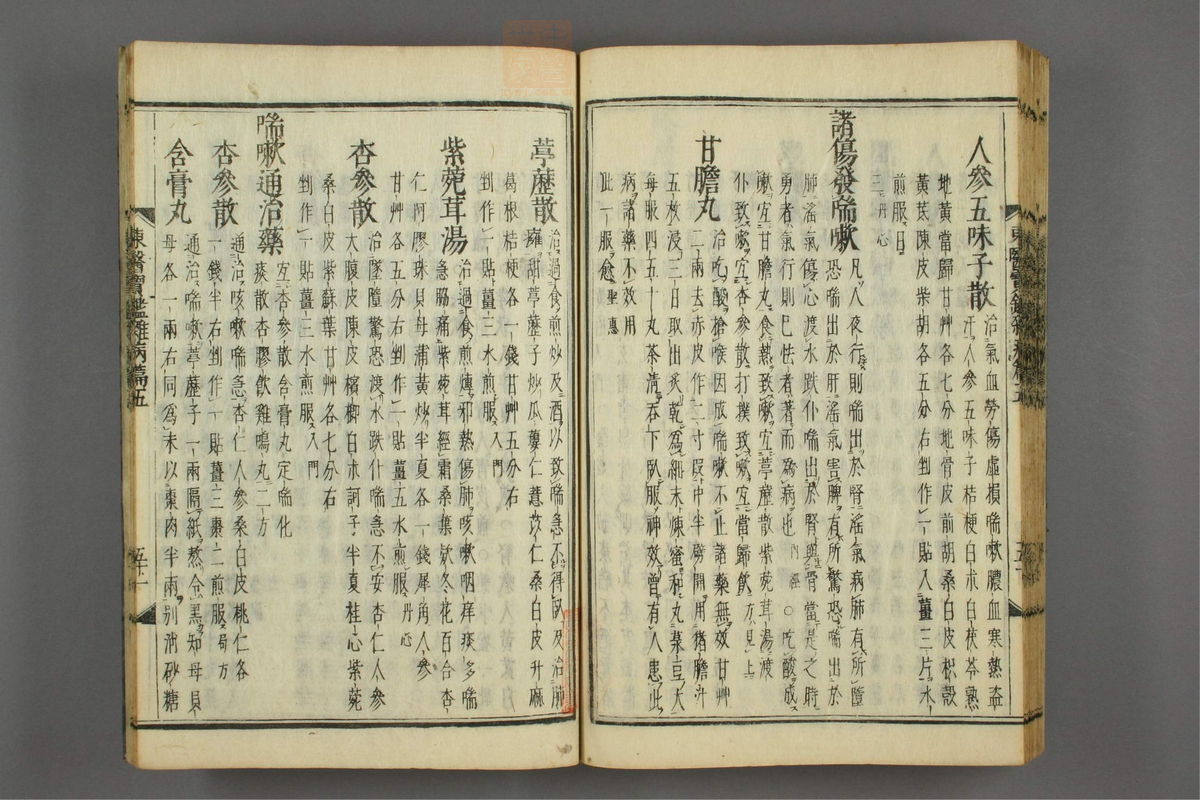 人參五味子散 治氣血勞傷虛損喘嗽膿血寒熱盜
汗人參五味子桔梗白朮白茯苓熟
地黃當歸甘艸各七分地骨皮前胡桑白皮枳殼
黃芪陳皮柴胡各五分右剉作一貼入薑三片水
煎服日
三丹心
諸傷發喘嗽 凡人夜行則喘出於腎淫氣病肺有所墮
恐喘出於肝淫氣害脾有所驚恐喘出於
肺淫氣傷心渡水跌仆喘出於腎與骨當是之時
勇者氣行則已怯者著而爲病也內經○吃酸成
嗽宜甘膽丸食熱致嗽宜葶藶散紫菀茸湯渡
仆致嗽宜杏參散打撲致嗽宜當歸飮方見上
甘膽丸 治吃酸搶喉因成喘嗽不止諸藥無效甘艸
二兩去赤皮作二寸段中半劈開用猪膽汁
五枚浸三日取出炙乾爲細末煉蜜和丸菉豆大
每服四五十丸茶淸吞下臥服神效曾有人患此
病諸藥不效用
此一服愈聖惠
葶藶散 治過食煎炒及酒以致喘急不得臥及治肺
癰甜葶藶子炒瓜蔞仁薏苡仁桑白皮升麻
葛根桔梗各一錢甘艸五分右
剉作一貼薑三水煎服入門
紫菀茸湯 治過食煎煿邪熱傷肺咳嗽咽痒痰多喘
急脇痛紫菀茸經霜桑葉款冬花百合杏
仁阿膠珠貝母蒲黃炒半夏各一錢犀角人參
甘艸各五分右剉作一貼薑五水煎服丹心
杏參散 治墜墮驚恐渡水跌仆喘急不安杏仁人參
大腹皮陳皮檳榔白朮訶子半夏桂心紫菀
桑白皮紫蘇葉甘艸各七分右
剉作一貼薑三水煎服入門
喘嗽通治藥 宜杏參散含膏丸定喘化
痰散杏膠飮雞鳴丸二方
杏參散 通治咳嗽喘急杏仁人參桑白皮桃仁各
一錢半右剉作一貼薑三棗二煎服局方
含膏丸 通治喘嗽葶藶子一兩隔紙熬令黑知母貝
母各一兩右同爲末以棗肉半兩別消砂糖
東醫寶鑑雜病篇五